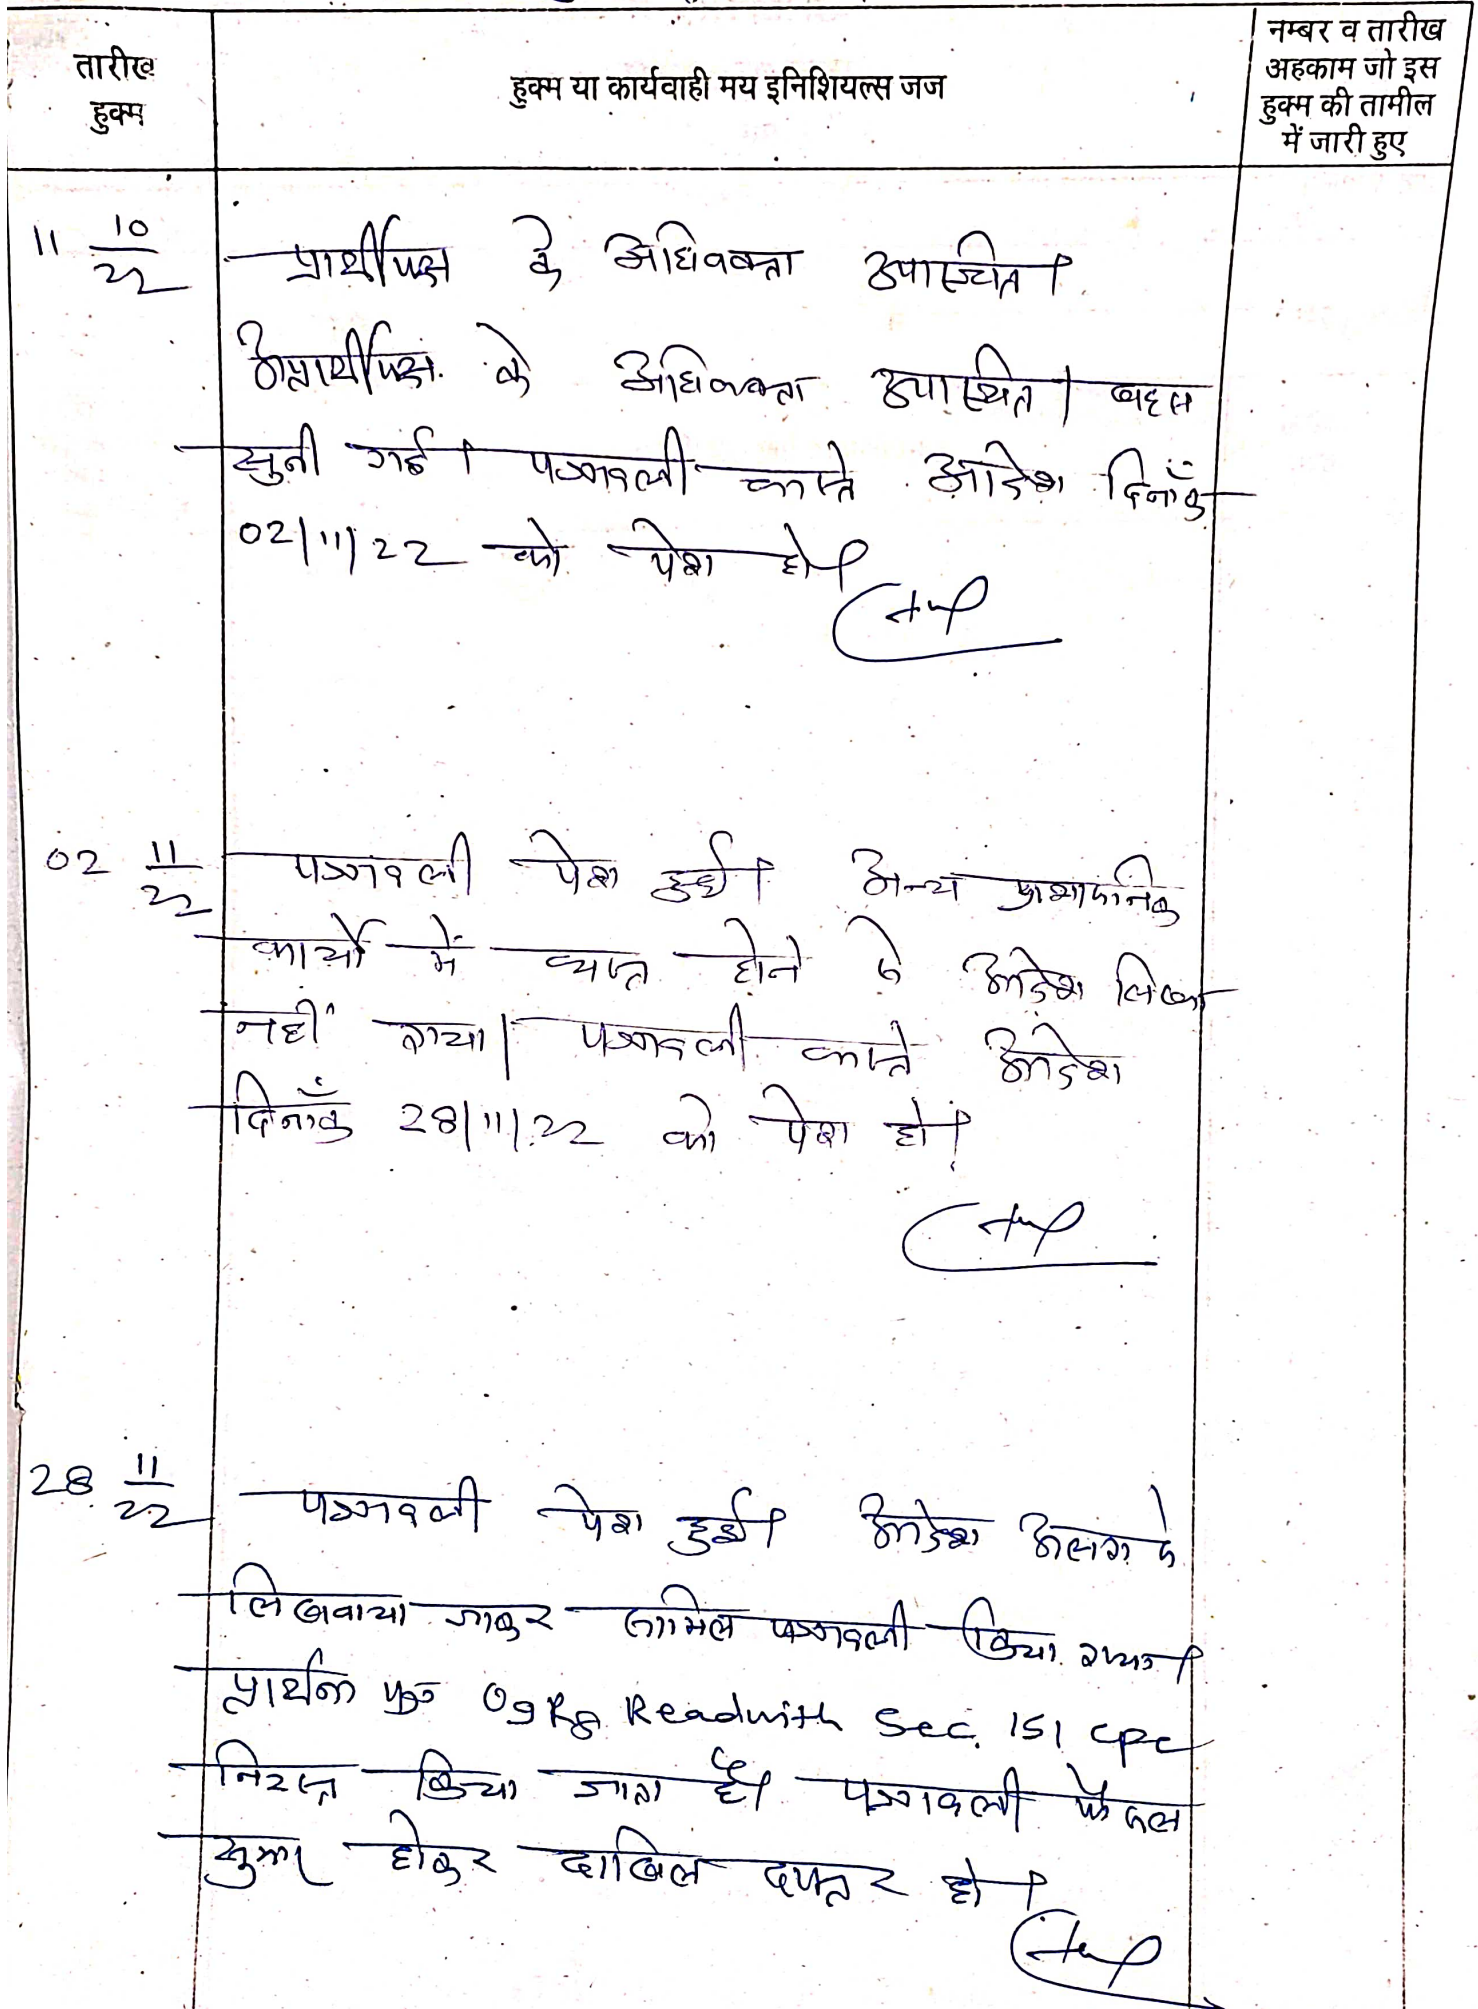 तारीख
हुक्म
हुक्म या कार्यवाही मय इनिशियल्स जज
नम्बर व तारीख
अहकाम जो इस
हुक्म की तामील
में जारी हुए
11 10/22 प्रार्थीपक्ष के अधिवक्ता उपस्थित।
अप्रार्थीपक्ष के अधिवक्ता उपस्थित। बहस
सुनी गई। पत्रावली वास्ते आदेश दिनाँक
02/11/22 को पेश हो।
02 11/22 पत्रावली पेश हुई। अन्य प्रशासनिक
कार्यो में व्यस्त होने से आदेश लिखा
नहीं गया। पत्रावली वास्ते आदेश
दिनाँक 28/11/22 को पेश हो।
28 11/22 पत्रावली पेश हुई। आदेश अलग से
लिखवाया जाकर शामिल पत्रावली किया गया।
प्रार्थना पत्र O9 R8 Readwith Sec. 151 CPC
निरस्त किया जाता है। पत्रावली फैसल
सुमार होकर दाखिल दफ्तर हो।